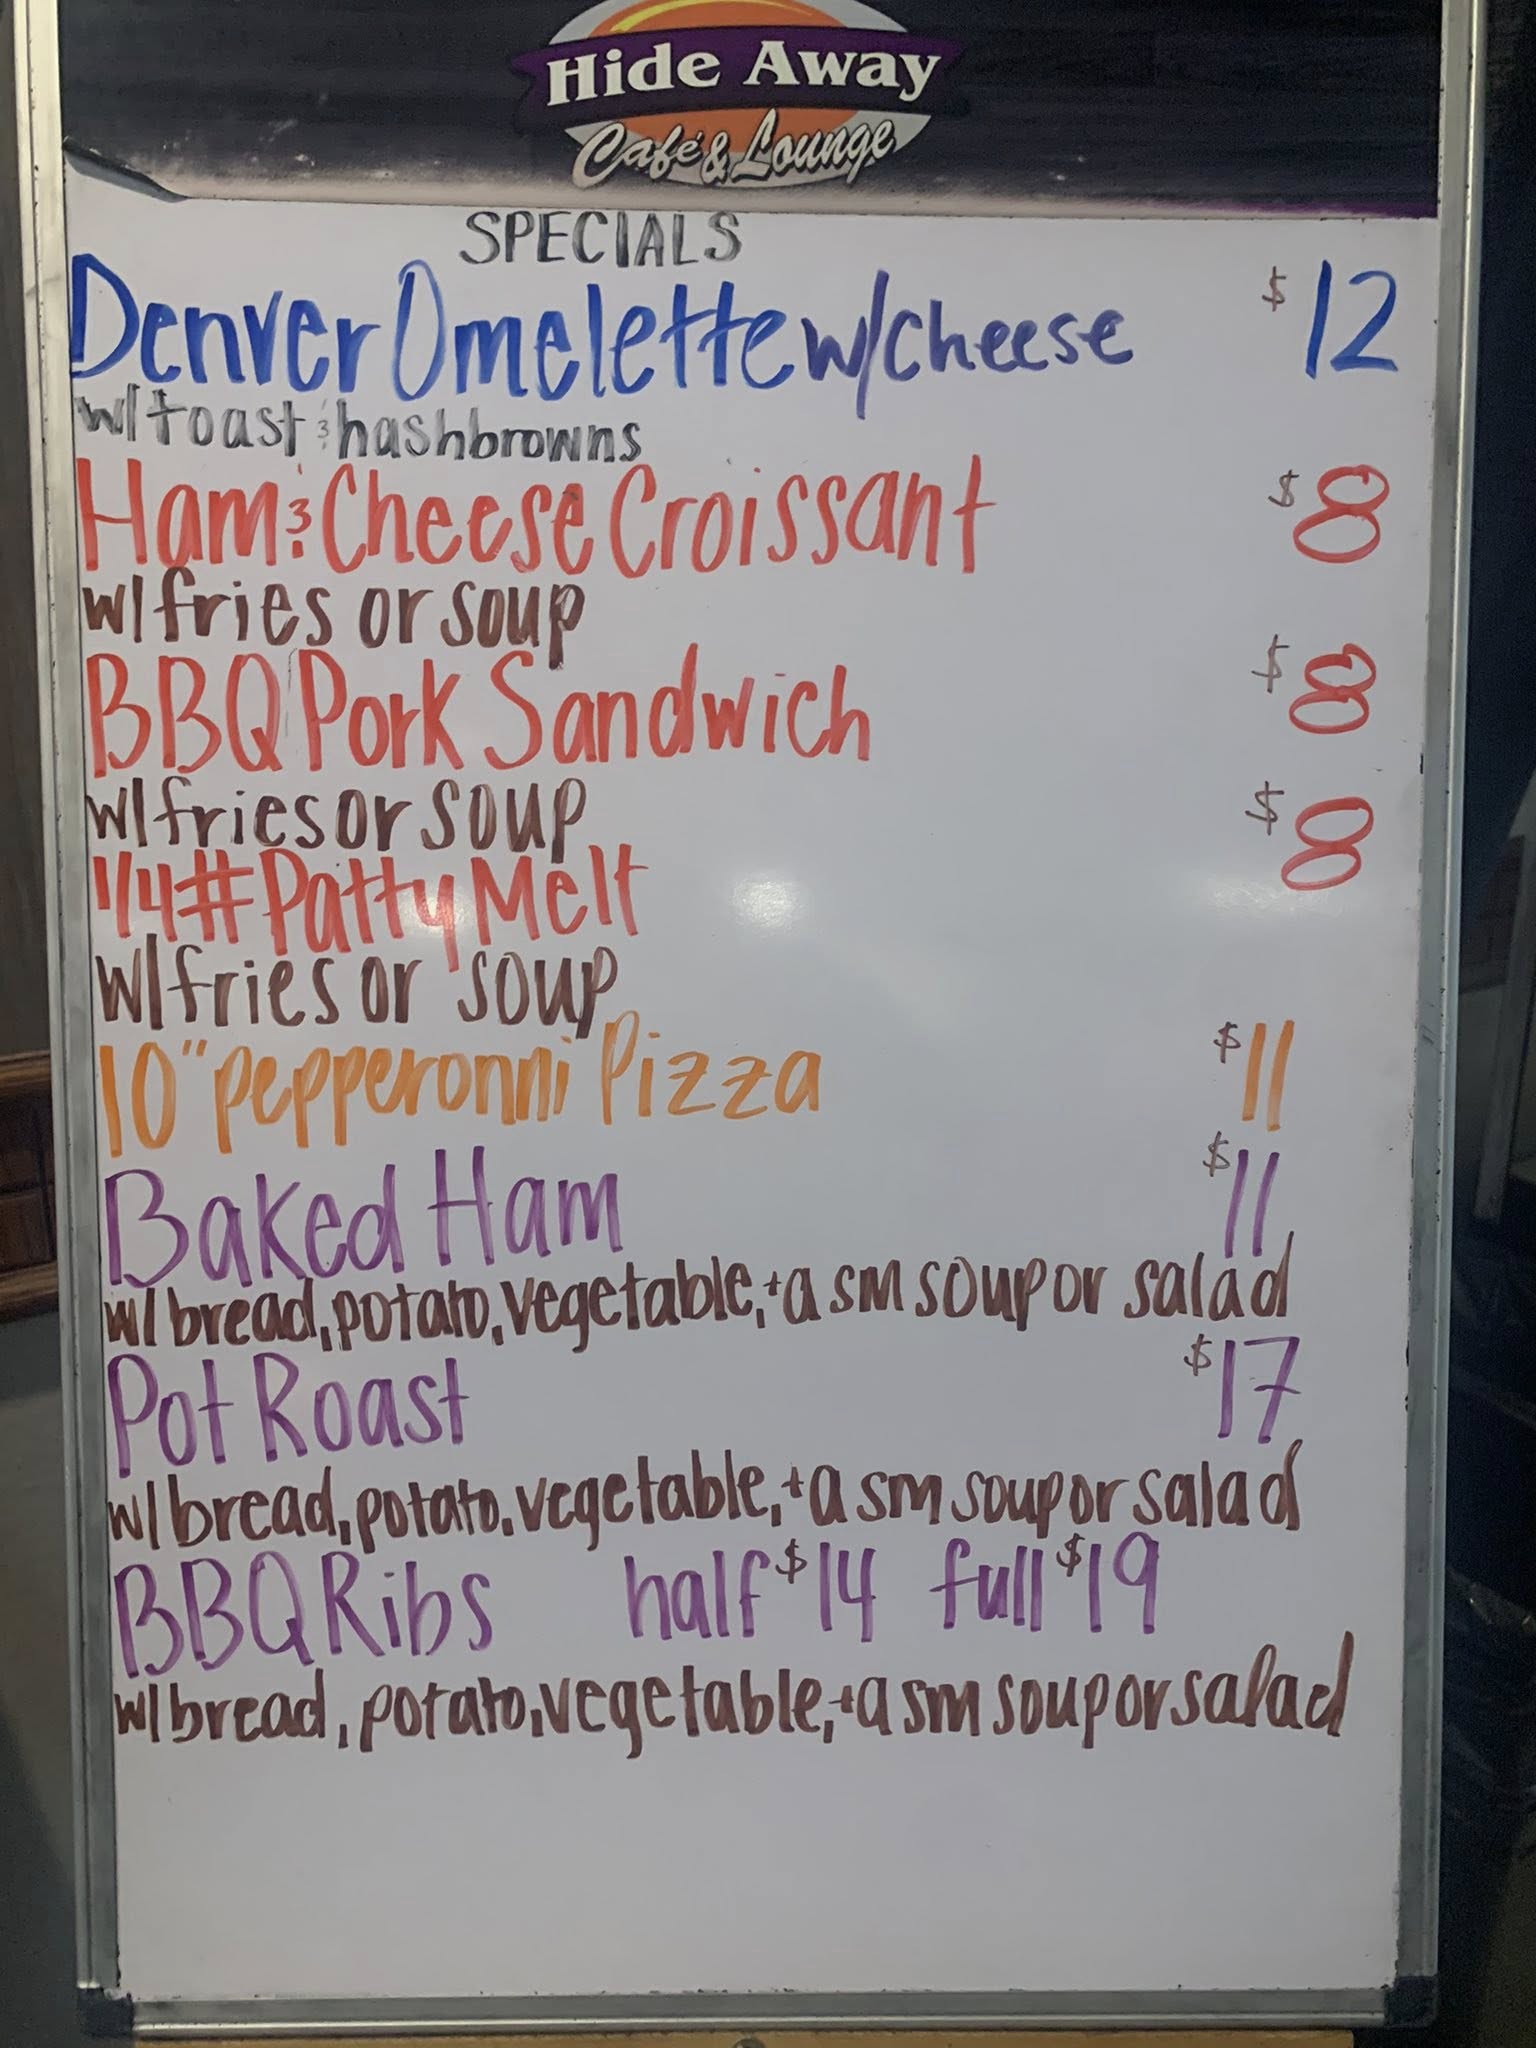 Hide Away
Café & Lounge
SPECIALS
Denver Omelette w/cheese $12
w/toast & hashbrowns
Ham & Cheese Croissant $8
w/fries or soup
BBQ Pork Sandwich $8
w/fries or soup
1/4# Patty Melt $8
w/fries or soup
10" pepperonni Pizza $11
Baked Ham $11
w/bread, potato, vegetable, + a sm soup or salad
Pot Roast $17
w/bread, potato, vegetable, + a sm soup or salad
BBQ Ribs half $14 full $19
w/bread, potato, vegetable, + a sm soup or salad